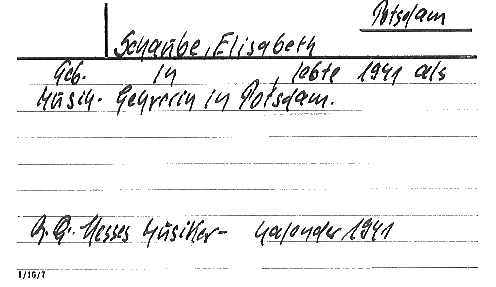 Potsdam
Schaube, Elisabeth
Geb. in , lebte 1941 als
Musik-Lehrerin in Potsdam.
Hesses Musiker-Kalender 1941
1/16/7